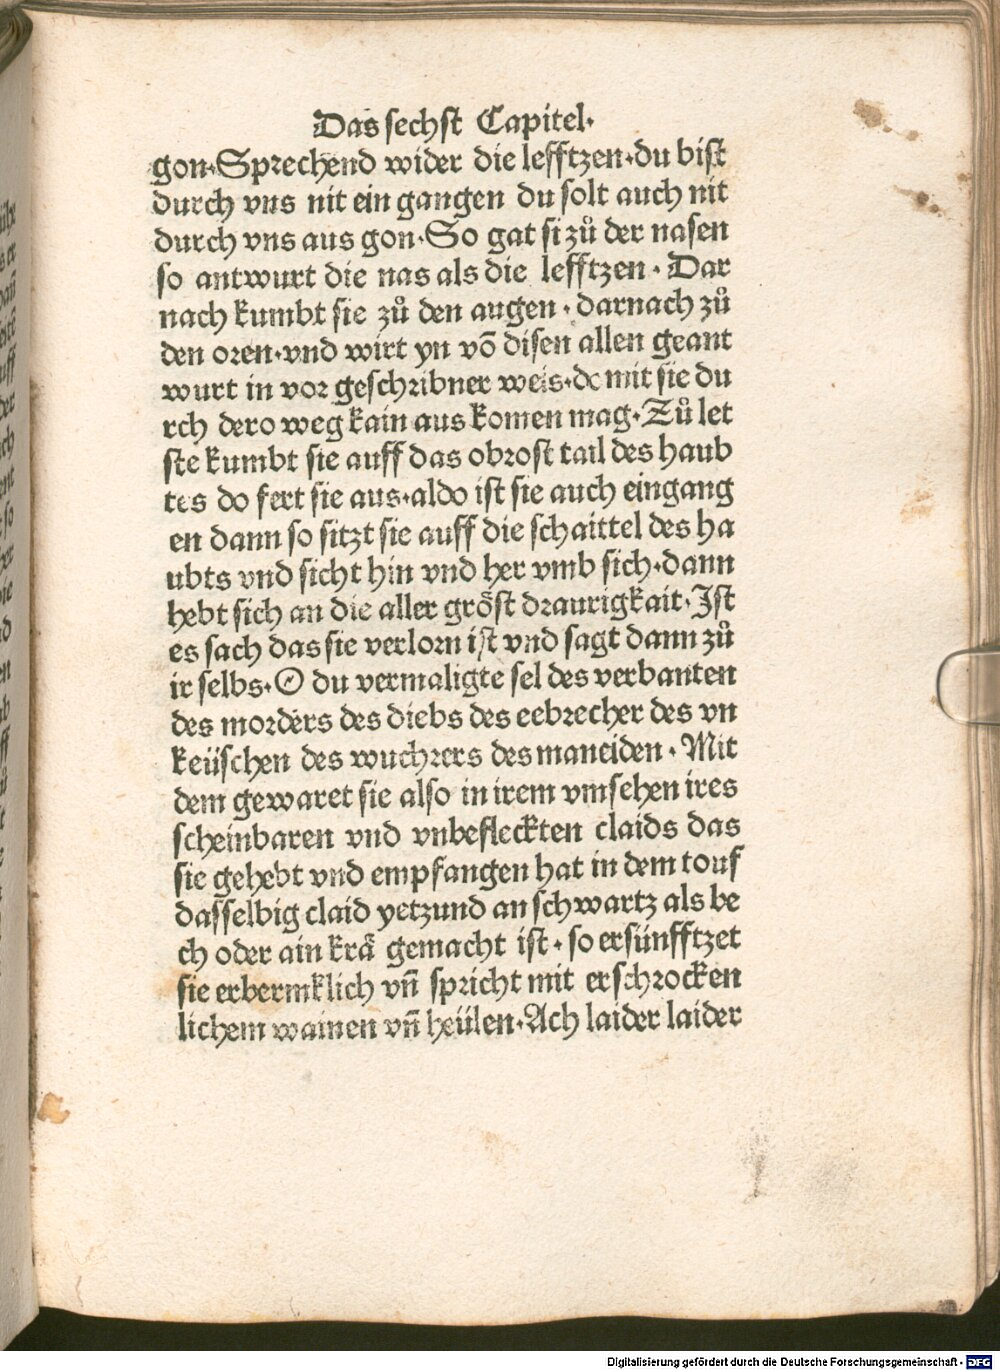 Das sechst Capitel·
gon·Sprechend wider die lefftzen·du bist
durch vns nit ein gangen du solt auch nit
durch vns aus gon·So gat si zů der nasen
so antwurt die nas als die lefftzen· Dar
nach kumbt sie zů den augen· darnach zů
den oren·vnd wirt yn vō disen allen geant
wurt in vor geschribner weis·do mit sie du
rch dero weg kain aus komen mag·Zů let
ste kumbt sie auff das obrost tail des haub
tes do fert sie aus·aldo ist sie auch eingang
en dann so sitzt sie auff die schaittel des ha
ubts vnd sicht hin vnd her vmb sich·dann
hebt sich an die aller grőst draurigkait·Ist
es sach das sie verlorn ist vnd sagt dann zů
ir selbs·O du vermaligte sel des verbanten
des morders des diebs des eebrecher des vn
keüschen des wuchrers des maneiden· Mit
dem gewaret sie also in irem vmsehen ires
scheinbaren vnd vnbefleckten claids das
sie gehebt vnd empfangen hat in dem touf
dasselbig claid yetzund an schwartz als be
ch oder ain krä gemacht ist· so ersünfftzet
sie erbermklich vn̄ spricht mit erschrocken
lichem wainen vn̄ heülen·Ach laider laider
Digitalisierung gefördert durch die Deutsche Forschungsgemeinschaft - DFG